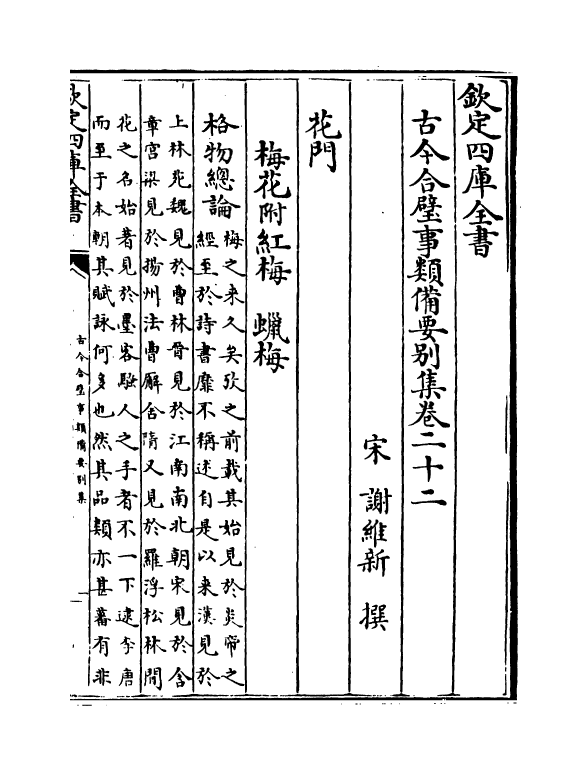 欽定四庫全書
古今合璧事類備要别集卷二十二
宋 謝維新 撰
花門
梅花附紅梅 蠟梅
格物總論
梅之来久矣攷之前載其始見於炎帝之
經至於詩書靡不稱述自是以来漢見於
上林苑魏見於曹林晉見於江南南北朝宋見於含
章宫梁見於揚州法曹廨舍隋又見於羅浮松林間
花之名始著見於墨客騷人之手者不一下逮李唐
而至于本朝其賦詠何多也然其品類亦甚蕃有非
欽定四庫全書
古今合璧事類備要别集
一